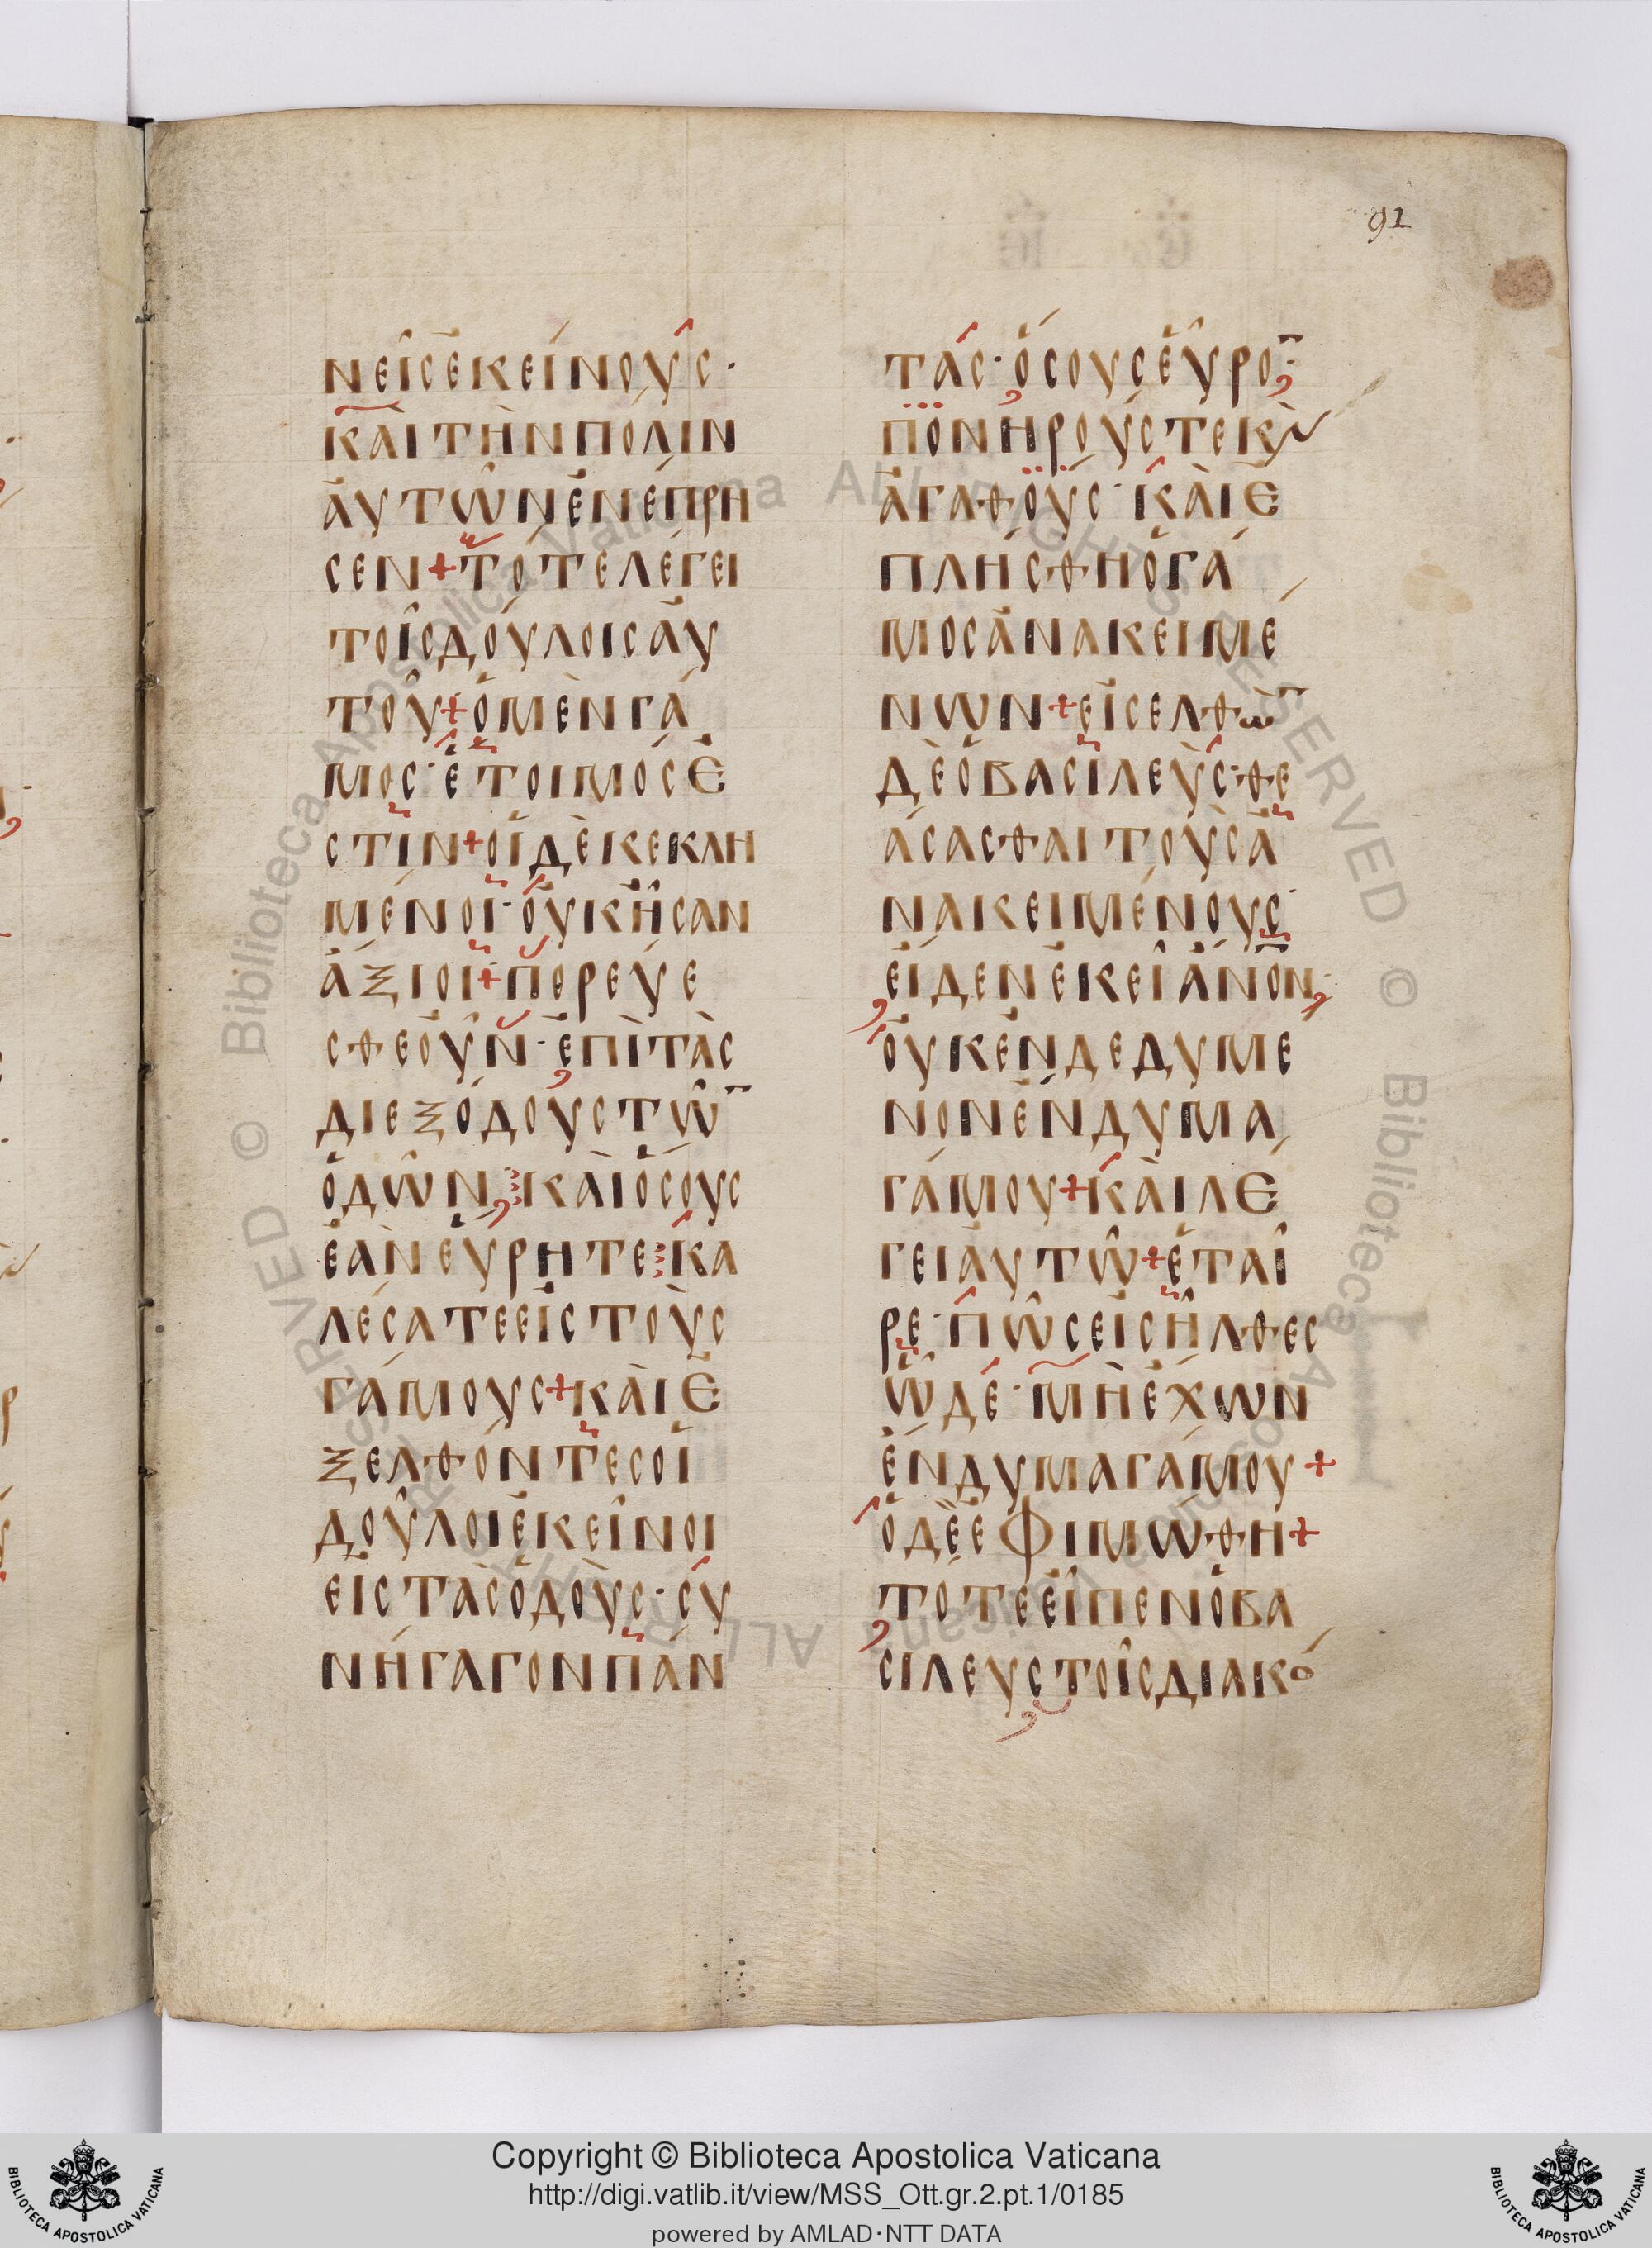 92
ΝΕΙ͂Σ ἘΚΕΊΝΟΥΣ·
ΚΑΙ ΤῊΝ ΠΌΛΙΝ
ἈΥΤΩ͂Ν ἘΝΈΠΡΗ
ΣΕΝ + ΤΌΤΕ ΛΈΓΕΙ
ΤΟΙ͂Σ ΔΟΎΛΟΙΣ ἈΥ
ΤΟΥ͂ + Ὁ ΜῈΝ ΓΆ
ΜΟΣ· ἝΤΟΙΜΌΣ Ἐ
ΣΤΙΝ + ΟἹ ΔῈ ΚΕΚΛΗ
ΜΈΝΟΙ· ὈΥΚ ἮΣΑΝ
ἌΞΙΟΙ + ΠΟΡΕΎΕ
ΣΘΕ ὈΥ͂Ν· ἘΠῚ ΤᾺΣ
ΔΙΕΞΌΔΟΥΣ ΤΩ͂ ̅
ὉΔΩ͂Ν, ΚΑῚ ὍΣΟΥΣ
ἘᾺΝ ΕὝΡΗΤΕ ΚΑ
ΛΈΣΑΤΕ ΕἸΣ ΤΟῪΣ
ΓΆΜΟΥΣ + ΚΑῚ Ἐ
ΞΕΛΘΌΝΤΕΣ ΟἹ
ΔΟΥ͂ΛΟΙ ἘΚΕΙ͂ΝΟΙ
ΕἸΣ ΤᾺΣ ὉΔΟῪΣ· ΣΥ
ΝΉΓΑΓΟΝ ΠΆΝ
ΤΑΣ· ὍΣΟΥΣ ἙΥ͂ΡΟ ̅·
ΠΟΝΗΡΟΎΣ ΤΕ Κ̀
ἈΓΑΘΟΎΣ· ΚΑῚ Ἐ
ΠΛΉΣΘΗ Ὁ ΓΆ
ΜΟΣ ἈΝΑΚΕΙΜΈ
ΝΩΝ + ΕἸΣΕΛΘῺ ̅
ΔῈ Ὁ ΒΑΣΙΛΕῪΣ· ΘΕ
ΆΣΑΣΘΑΙ ΤΟῪΣ Ἀ
ΝΑΚΕΙΜΈΝΟΥΣ·
ἘΙ͂ΔΕΝ ἘΚΕΙ͂ ἌΝ̅Ο̅Ν·
ὈΥΚ ἘΝΔΕΔΥΜΈ
ΝΟΝ ἘΝΔΥΜΑ
ΓΆΜΟΥ + ΚΑῚ ΛΈ
ΓΕΙ ἈΥΤΩ͂ + ἙΤΑΙ͂
ΡΕ· ΠΩ͂Σ ΕἸΣΗ͂ΛΘΕΣ
ὯΔΕ· ΜῊ ἘΧΩΝ
ἘΝΔΥΜΑ ΓΆΜΟΥ +
Ὁ ΔῈ ἘΦΙΜΏΘΗ +
ΤΌΤΕ ἘΙ͂ΠΕΝ Ὁ ΒΑ
ΣΙΛΕΥΣ ΤΟΙ͂Σ ΔΙΑΚΌ
Copyright © Biblioteca Apostolica Vaticana
http://digi.vatlib.it/view/MSS_Ott.gr.2.pt.1/0185
powered by AMLAD·NTT DATA
BIBLIOTECA APOSTOLICA VATICANA
BIBLIOTECA APOSTOLICA VATICANA